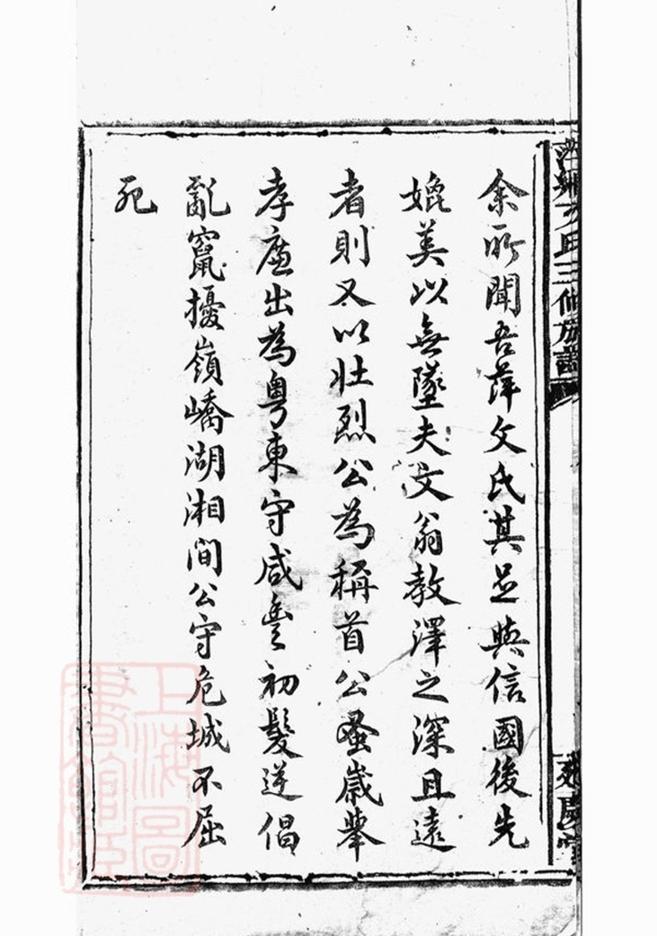 余所聞吾萍文氏其足與信國後先
媲美以無墜夫文翁教澤之深且遠
者則又以壯烈公為稱首公蚤歲舉
孝廉出為粵東守咸豐初髮逆倡
亂竄擾嶺嶠湖湘間公守危城不屈
死
上海圖書館藏